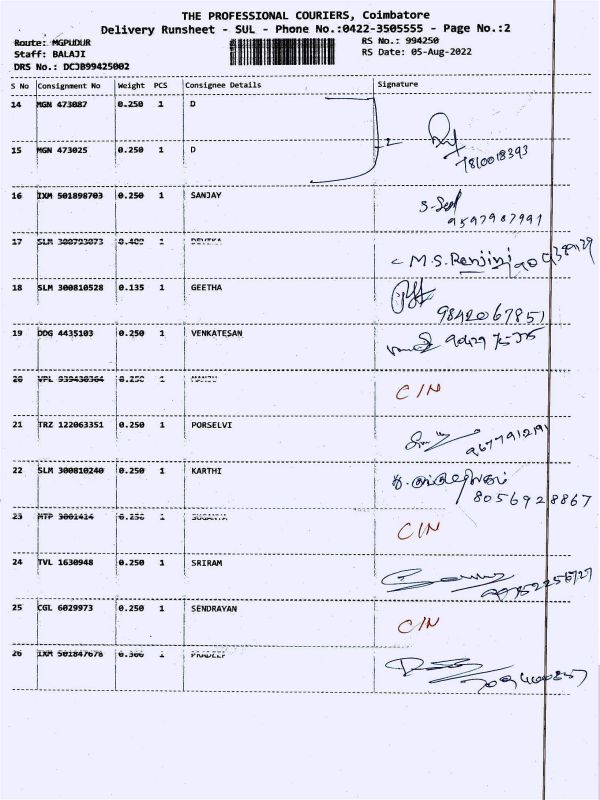 THE PROFESSIONAL COURIERS, Coimbatore
Delivery Runsheet - SUL - Phone No.:0422-3505555 - Page No.:2
Route: MGPUDUR
RS No.: 994250
Staff: BALAJI
RS Date: 05-Aug-2022
DRS No.: DCJB99425002
S No Consignment No Weight PCS Consignee Details Signature
14 MGN 473087 0.250 1 D
15 MGN 473025 0.250 1 D
7810018393
16 IXM 501898703 0.250 1 SANJAY
9597987991
17 SLM 300793073 0.400 1 DEVIKA
M.S. Renjini
18 SLM 300810528 0.135 1 GEETHA
9842067851
19 DDG 4435103 0.250 1 VENKATESAN
20 VPL 939430364 0.250 1 MANJU C/N
21 TRZ 122063351 0.250 1 PORSELVI
9677912191
22 SLM 300810240 0.250 1 KARTHI
8056928867
23 MTP 3001414 0.250 1 SUGANYA C/N
24 TVL 1630948 0.250 1 SRIRAM
25 CGL 6029973 0.250 1 SENDRAYAN C/N
26 IXM 501847678 0.300 1 PRADEEP